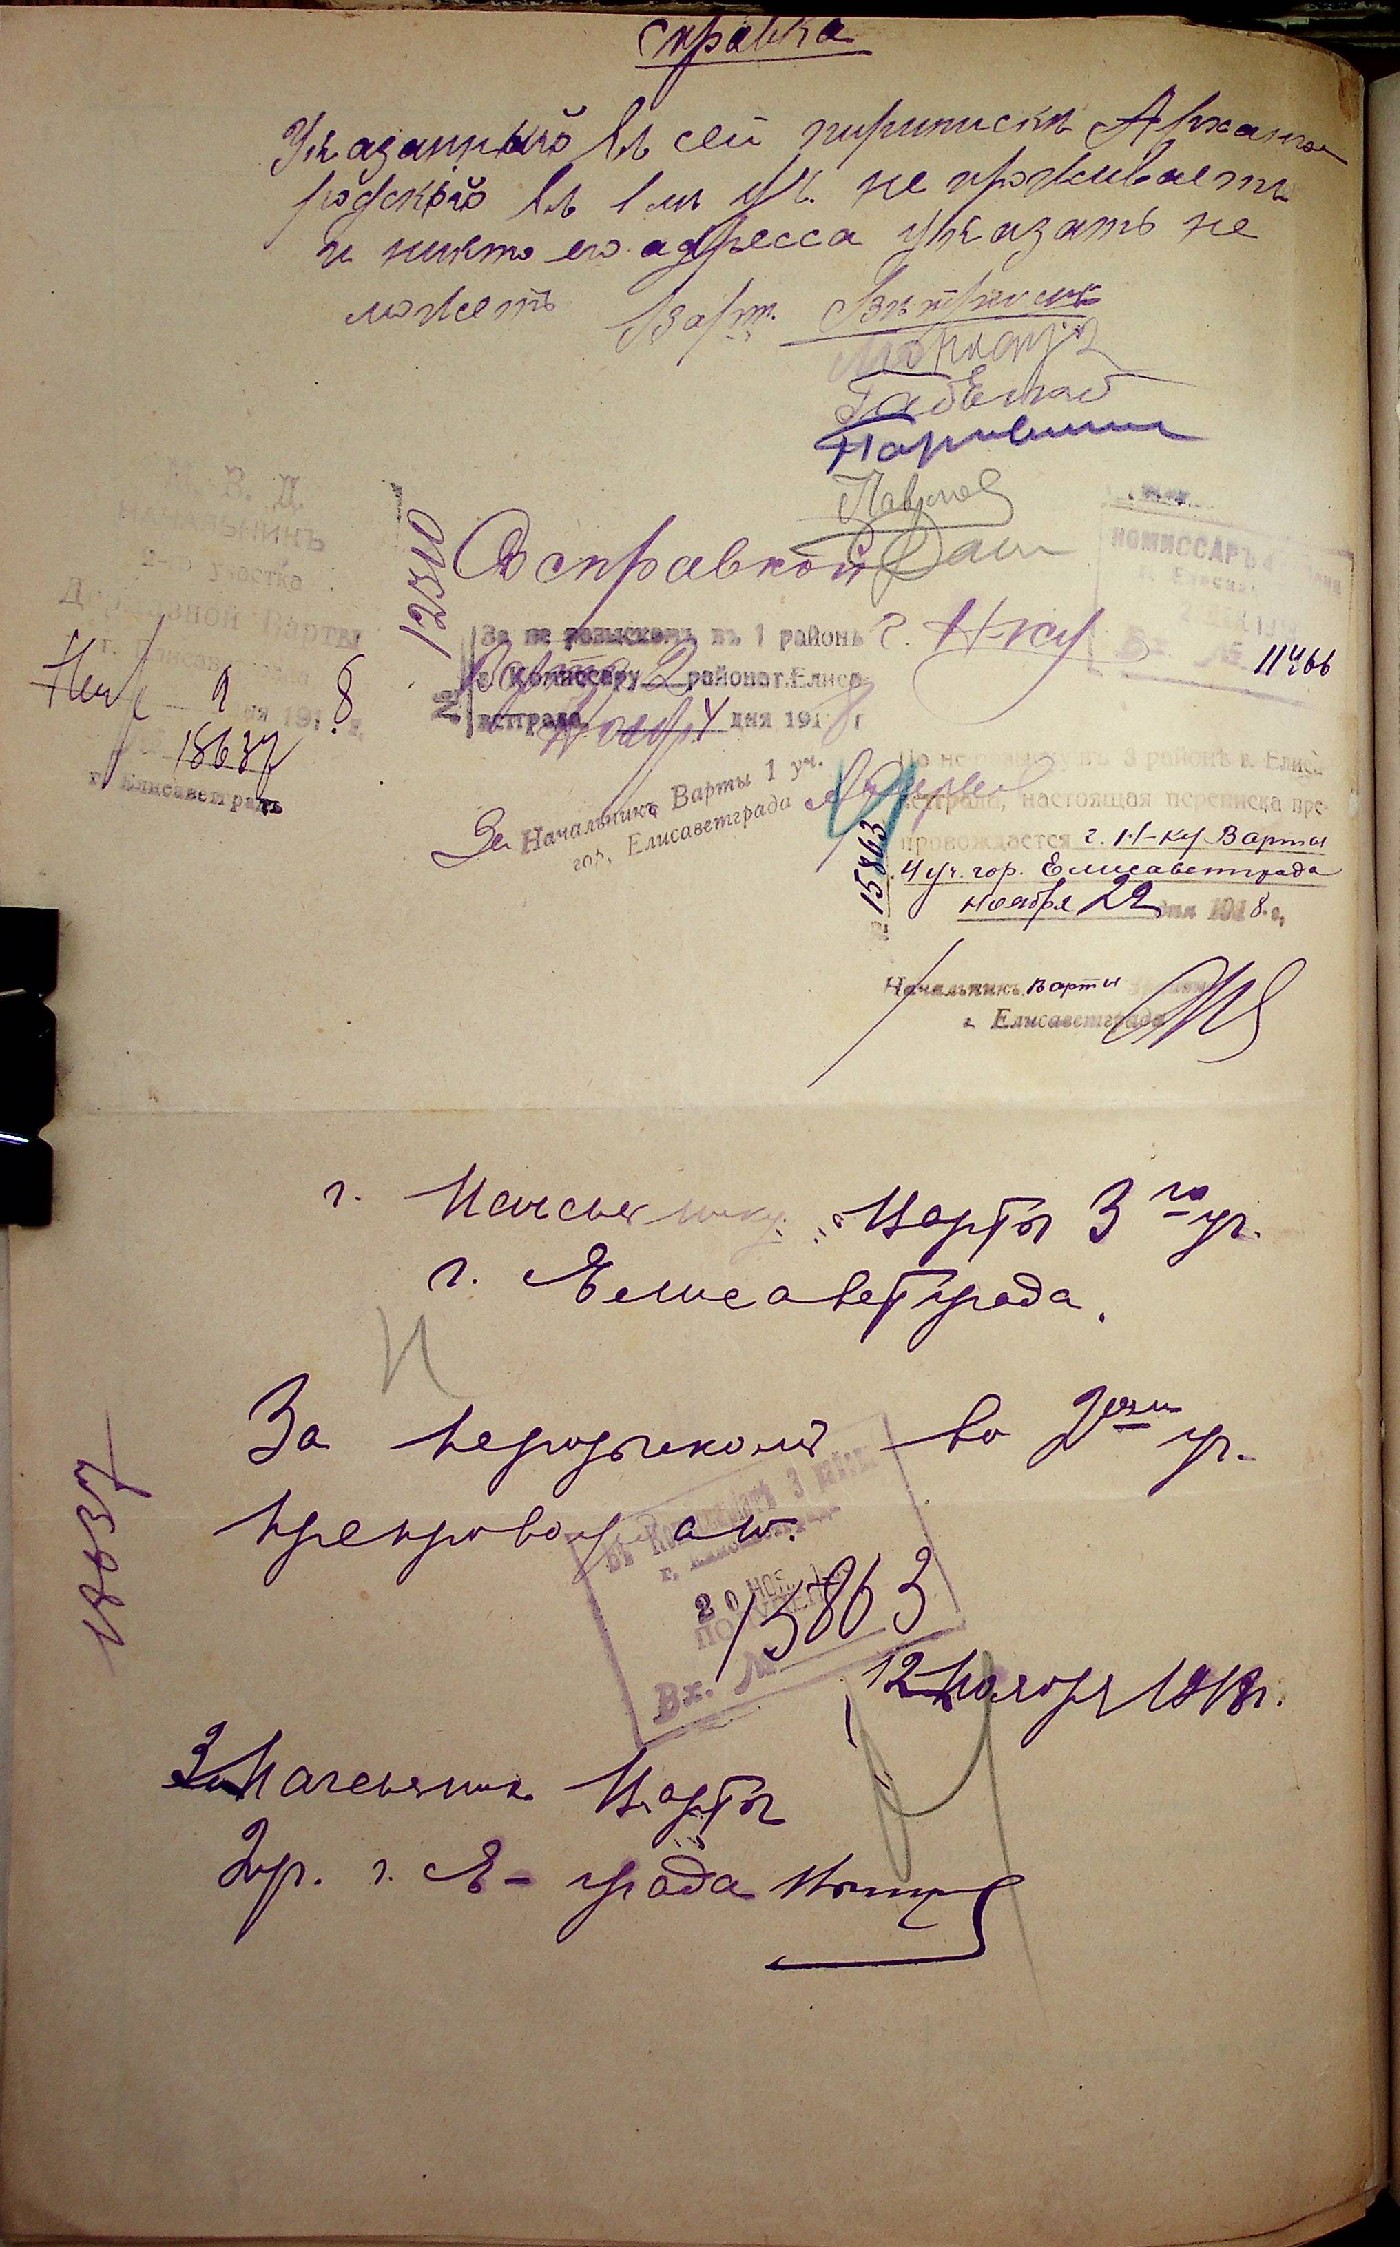 справка
Указанный въ сей переписке Арханго
родский въ 1 м уч. не проживаетъ
и никто его адресса указать не
можетъ Варт.
М. В. Д.
НАЧАЛЬНИКЪ
2-го участка
Державной Варты
г. Елисаветград
9 дня 1918 г.
18637
г. Елисаветградъ
12310
Съ справкой
г. Н-ку
За не розыскомъ въ 1 районѣ
Варты
г. Комиссару 2 района г. Елиса-
ветграда, Нояб 4 дня 1918 г
№
За Начальникъ Варты 1 уч.
гор. Елисаветграда
КОМИССАРЪ
Вх. № 11466
По не розыску въ 3 районѣ г. Елиса-
ветграда, настоящая переписка пре-
провождается г. Н-ку Варты
4 уч. гор. Елисаветграда
ноября 22 дня 1918 г.
15863
Начальникъ Варты
г. Елисаветграда
г. Начальнику Варты 3 го уч.
г. Елисаветграда.
За нерозыскомъ во 2омъ уч.
препровождаю.
18637
Въ Комиссаріатѣ 3
г. Елисаветграда
20 НОЯ
ПОЛУЧЕН
Вх. № 15863
12 Ноября 1918 г.
За Начальник Варты
2 уч. г. Е-града